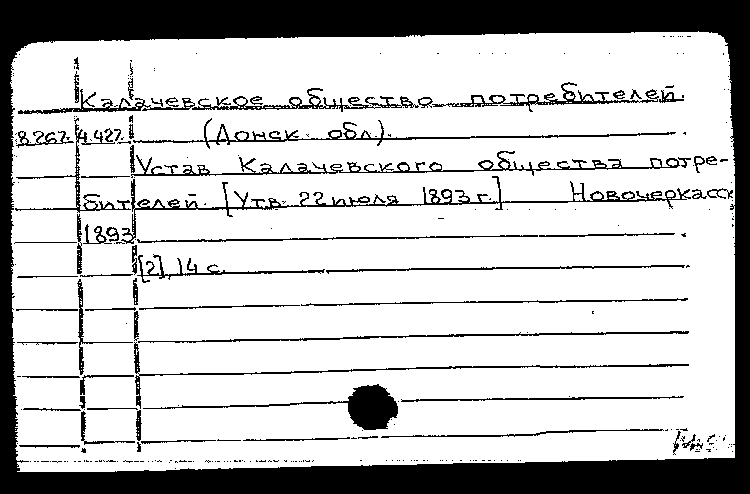 Калачевское общество потребителей
8.267. 4.427. (Донск. обл).
Устав Калачевского общества потре-
бителей. [Утв. 22 июля 1893 г.] Новочеркасск
1893
[2], 14 с.